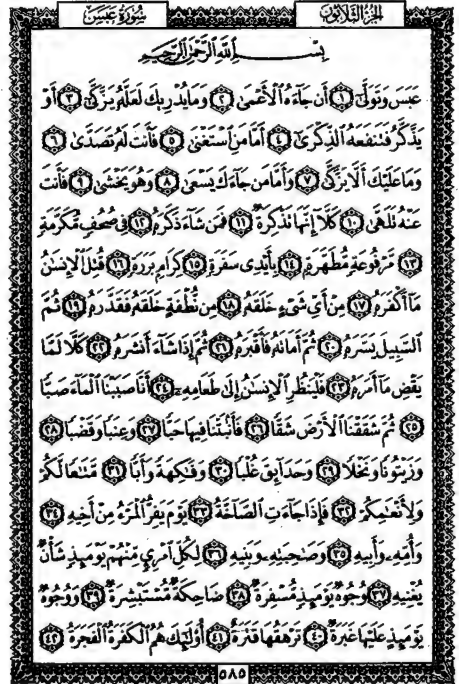 الجزء الثلاثون
سورة عبس
بِسْمِ ٱللَّهِ ٱلرَّحْمَٰنِ ٱلرَّحِيمِ
عَبَسَ وَتَوَلَّىٰٓ ١ أَن جَآءَهُ ٱلْأَعْمَىٰ ٢ وَمَا يُدْرِيكَ لَعَلَّهُۥ يَزَّكَّىٰٓ ٣ أَوْ
يَذَّكَّرُ فَتَنفَعَهُ ٱلذِّكْرَىٰٓ ٤ أَمَّا مَنِ ٱسْتَغْنَىٰ ٥ فَأَنتَ لَهُۥ تَصَدَّىٰ ٦
وَمَا عَلَيْكَ أَلَّا يَزَّكَّىٰ ٧ وَأَمَّا مَن جَآءَكَ يَسْعَىٰ ٨ وَهُوَ يَخْشَىٰ ٩ فَأَنتَ
عَنْهُ تَلَهَّىٰ ١٠ كَلَّآ إِنَّهَا تَذْكِرَةٌ ١١ فَمَن شَآءَ ذَكَرَهُۥ ١٢ فِى صُحُفٍ مُّكَرَّمَةٍ
١٣ مَّرْفُوعَةٍ مُّطَهَّرَةٍۭ ١٤ بِأَيْدِى سَفَرَةٍ ١٥ كِرَامٍۭ بَرَرَةٍ ١٦ قُتِلَ ٱلْإِنسَٰنُ
مَآ أَكْفَرَهُۥ ١٧ مِنْ أَىِّ شَىْءٍ خَلَقَهُۥ ١٨ مِن نُّطْفَةٍ خَلَقَهُۥ فَقَدَّرَهُۥ ١٩ ثُمَّ
ٱلسَّبِيلَ يَسَّرَهُۥ ٢٠ ثُمَّ أَمَاتَهُۥ فَأَقْبَرَهُۥ ٢١ ثُمَّ إِذَا شَآءَ أَنشَرَهُۥ ٢٢ كَلَّا لَمَّا
يَقْضِ مَآ أَمَرَهُۥ ٢٣ فَلْيَنظُرِ ٱلْإِنسَٰنُ إِلَىٰ طَعَامِهِۦٓ ٢٤ أَنَّا صَبَبْنَا ٱلْمَآءَ صَبًّا
٢٥ ثُمَّ شَقَقْنَا ٱلْأَرْضَ شَقًّا ٢٦ فَأَنۢبَتْنَا فِيهَا حَبًّا ٢٧ وَعِنَبًا وَقَضْبًا ٢٨
وَزَيْتُونًا وَنَخْلًا ٢٩ وَحَدَآئِقَ غُلْبًا ٣٠ وَفَٰكِهَةً وَأَبًّا ٣١ مَّتَٰعًا لَّكُمْ
وَلِأَنْعَٰمِكُمْ ٣٢ فَإِذَا جَآءَتِ ٱلصَّآخَّةُ ٣٣ يَوْمَ يَفِرُّ ٱلْمَرْءُ مِنْ أَخِيهِ ٣٤
وَأُمِّهِۦ وَأَبِيهِ ٣٥ وَصَٰحِبَتِهِۦ وَبَنِيهِ ٣٦ لِكُلِّ ٱمْرِئٍ مِّنْهُمْ يَوْمَئِذٍ شَأْنٌ
يُغْنِيهِ ٣٧ وُجُوهٌ يَوْمَئِذٍ مُّسْفِرَةٌ ٣٨ ضَاحِكَةٌ مُّسْتَبْشِرَةٌ ٣٩ وَوُجُوهٌ
يَوْمَئِذٍ عَلَيْهَا غَبَرَةٌ ٤٠ تَرْهَقُهَا قَتَرَةٌ ٤١ أُو۟لَٰٓئِكَ هُمُ ٱلْكَفَرَةُ ٱلْفَجَرَةُ ٤٢
٥٨٥